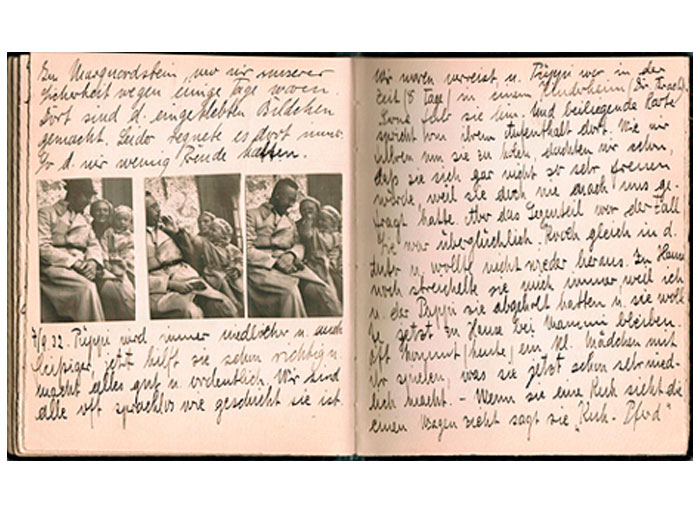 In Marquardstein, wo wir unserer
Sicherheit wegen einige Tage waren.
Dort sind d. eingeklebten Bildchen
gemacht. Leider regnete es dort immer
so d. wir wenig Freude hatten.
7/9 32. Puppi wird immer niedlicher u. auch
fleißiger, jetzt hilft sie schon richtig u.
macht alles gut u. ordentlich. Wir sind
alle oft sprachlos wie geschickt sie ist.
Wir waren verreist u. Puppi war in der
Zeit /8 Tage/ in einem Kinderheim
sie ein. Und beiliegende Karte
spricht von ihrem Aufenthalt dort. Wie wir
kamen um sie zu holen, dachten wir schon,
daß sie sich gar nicht so sehr freuen
würde, weil sie doch nie nach uns ge-
fragt hatte. Aber das Gegenteil war der Fall
Sie war überglücklich. Kroch gleich in d.
Auto u. wollte nicht wieder heraus. Zu Hause
noch streichelte sie mich immer weil ich
u. der Pappi sie abgeholt hatten u. sie woll
te jetzt zu Hause bei Mammi bleiben.
Oft kommt /heute/ ein kl. Mädchen mit
ihr spielen, was sie jetzt schon sehr nied-
lich macht. - Wenn sie eine Kuh sieht die
einen Wagen zieht sagt sie „Kuh - Pferd"